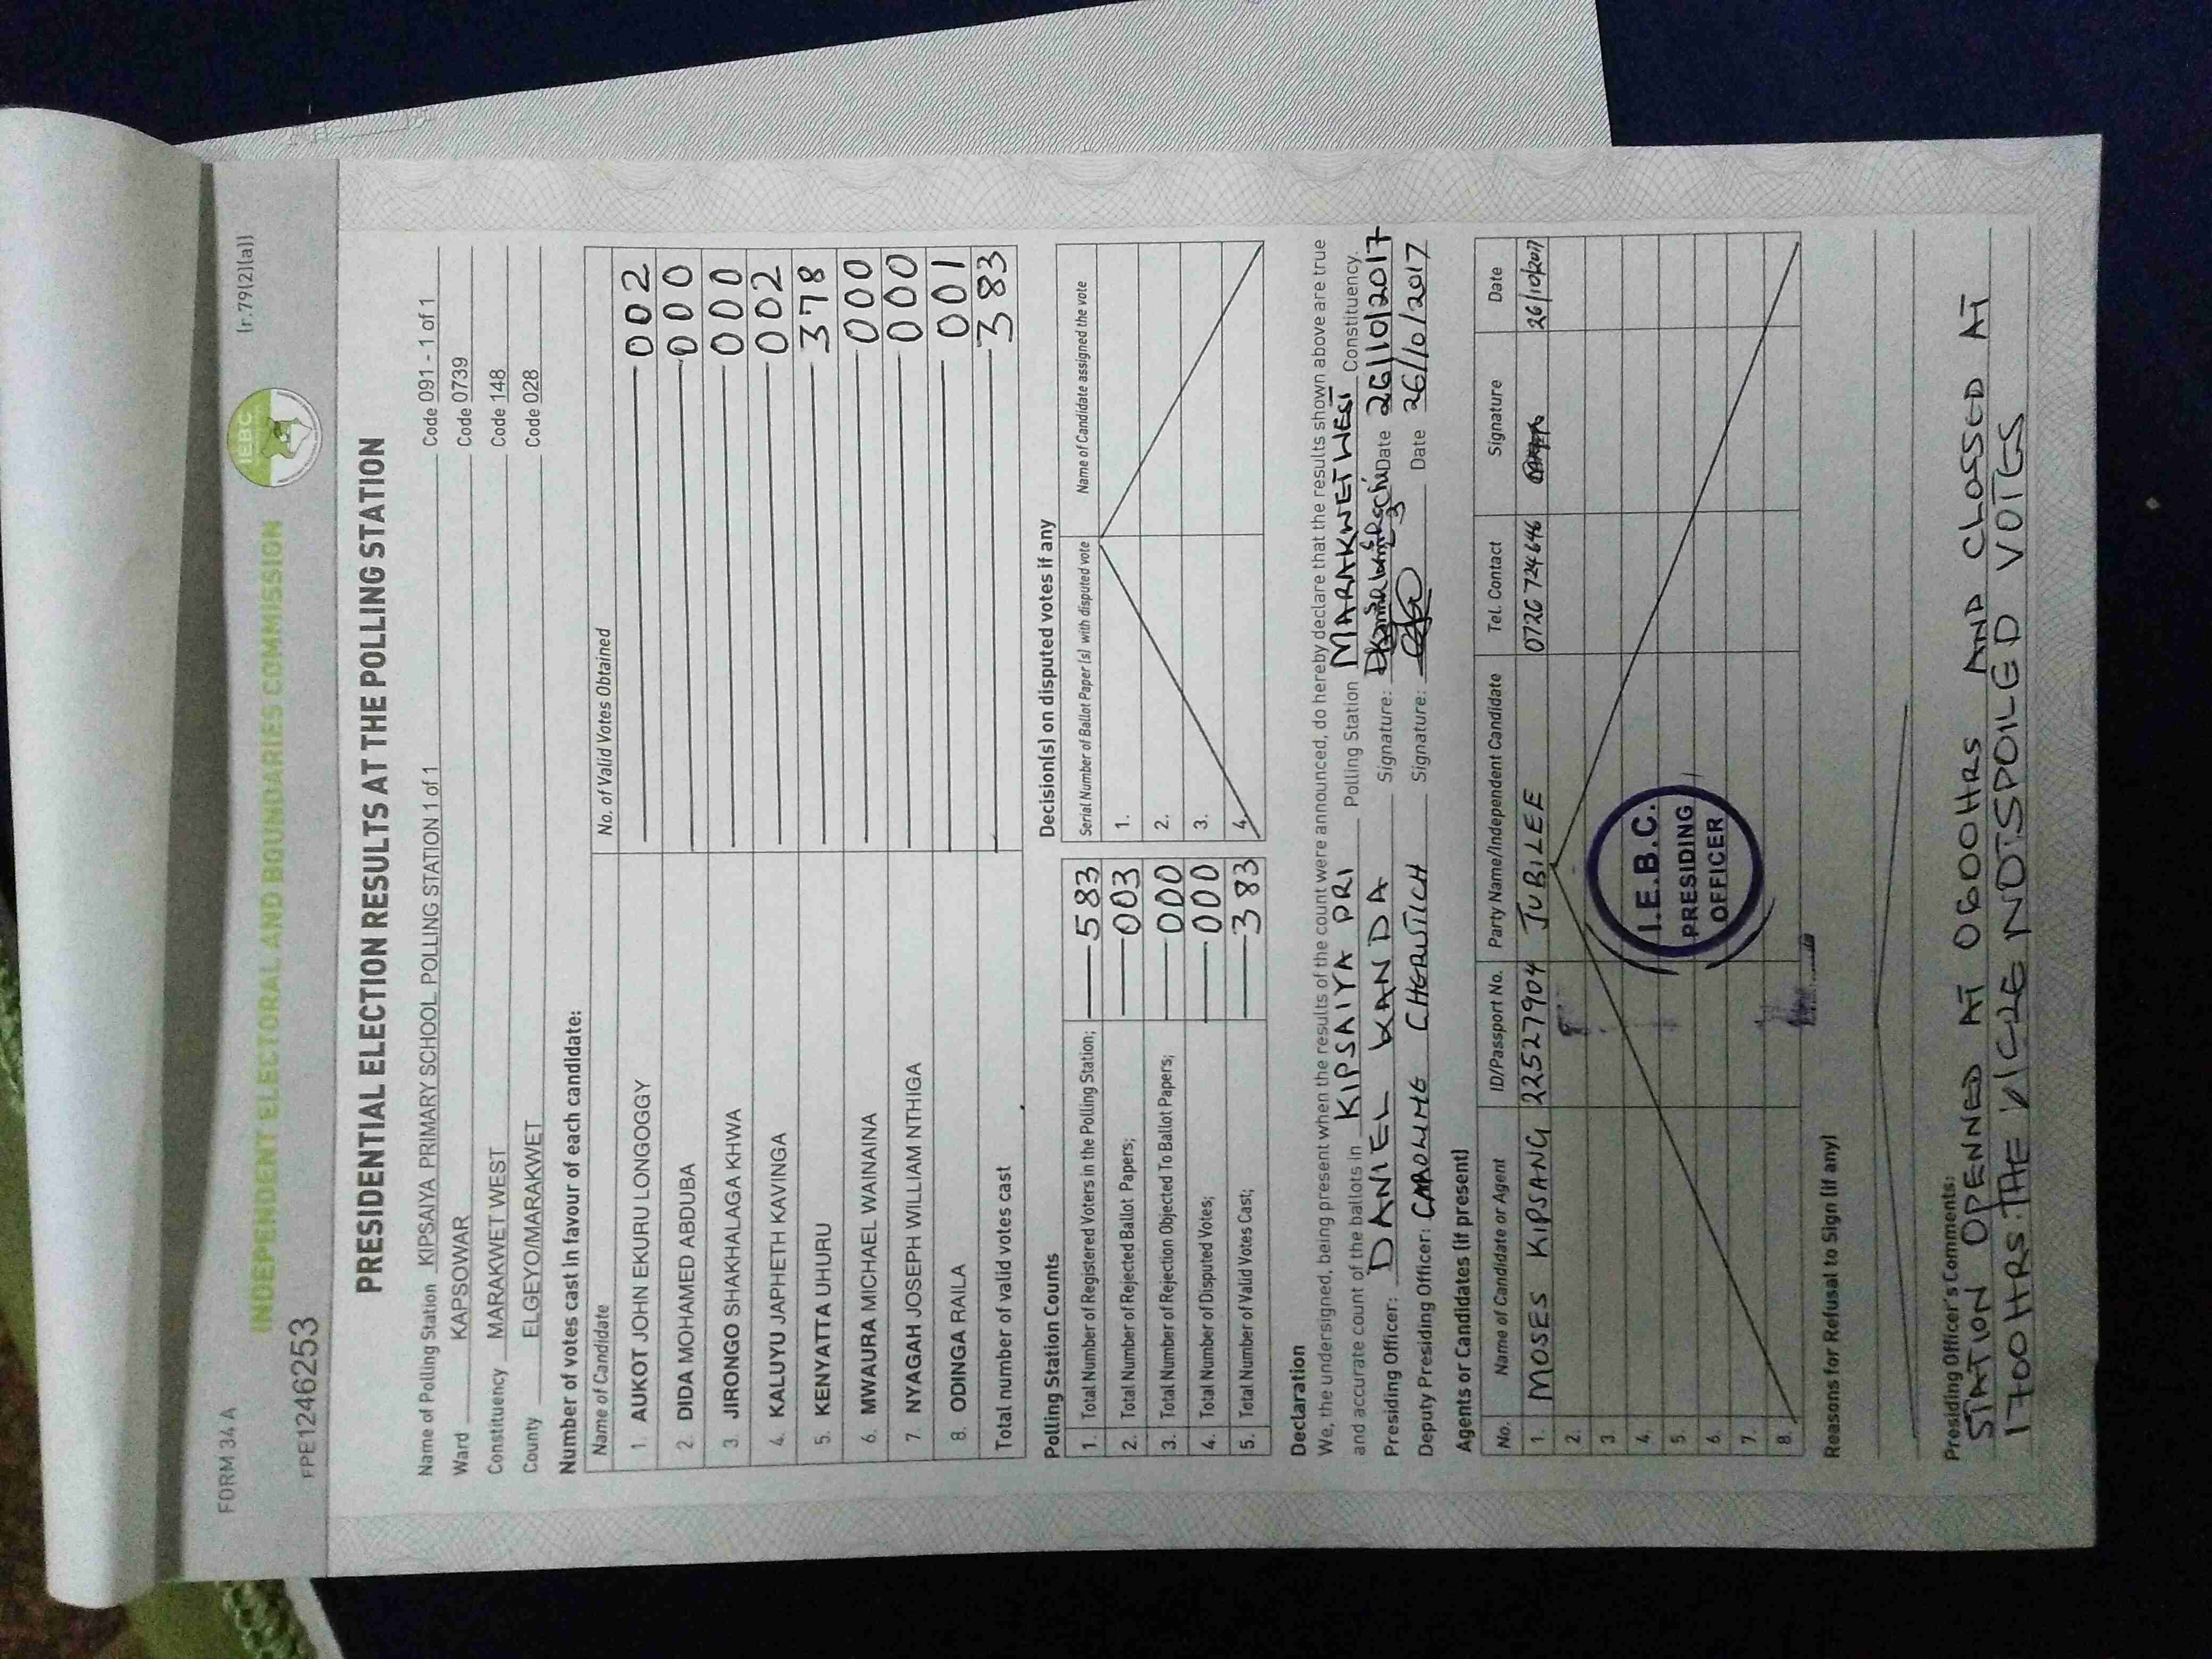 FORM 34 A
(r.79(2)(a))
INDEPENDENT ELECTORAL AND BOUNDARIES COMMISSION
IEBC
FPE1246253
PRESIDENTIAL ELECTION RESULTS AT THE POLLING STATION
Name of Polling Station KIPSAIYA PRIMARY SCHOOL POLLING STATION 1 of 1 Code 091 - 1 of 1
Ward KAPSOWAR Code 0739
Constituency MARAKWET WEST Code 148
County ELGEYO/MARAKWET Code 028
Number of votes cast in favour of each candidate:
Name of Candidate No. of Valid Votes Obtained
1. AUKOT JOHN EKURU LONGOGGY 002
2. DIDA MOHAMED ABDUBA 000
3 JIRONGO SHAKHALAGA KHWA 000
4. KALUYU JAPHETH KAVINGA 002
5. KENYATTA UHURU 378
6. MWAURA MICHAEL WAINAINA 000
7. NYAGAH JOSEPH WILLIAM NTHIGA 000
8. ODINGA RAILA 001
Total number of valid votes cast 383
Polling Station Counts
1. Total Number of Registered Voters in the Polling Station; 583
2. Total Number of Rejected Ballot Papers; 003
3. Total Number of Rejection Objected To Ballot Papers; 000
4. Total Number of Disputed Votes; 000
5. Total Number of Valid Votes Cast; 383
Decision(s) on disputed votes if any
Serial Number of Ballot Paper (s) with disputed vote Name of Candidate assigned the vote
1.
2.
3.
4.
Declaration
We, the undersigned, being present when the results of the count were announced, do hereby declare that the results shown above are true
and accurate count of the ballots in KIPSAIYA PRI Polling Station MARAKWET WEST Constituency.
Presiding Officer: DANIEL KANDA Signature: Date 26/10/2017
Deputy Presiding Officer: CAROLINE CHERUTICH Signature: Date 26/10/2017
Agents or Candidates (if present)
No. Name of Candidate or Agent ID/Passport No. Party Name/Independent Candidate Tel. Contact Signature Date
1. MOSES KIPSANG 22527904 JUBILEE 0726724646 26/10/2017
2.
3.
4.
5.
6.
7.
8.
I.E.B.C.
PRESIDING
OFFICER
Reasons for Refusal to Sign (if any)
Presiding Officer's Comments:
STATION OPENNED AT 0600HRS AND CLOSSED AT
1700HRS: THE NOT SPOILED VOTES